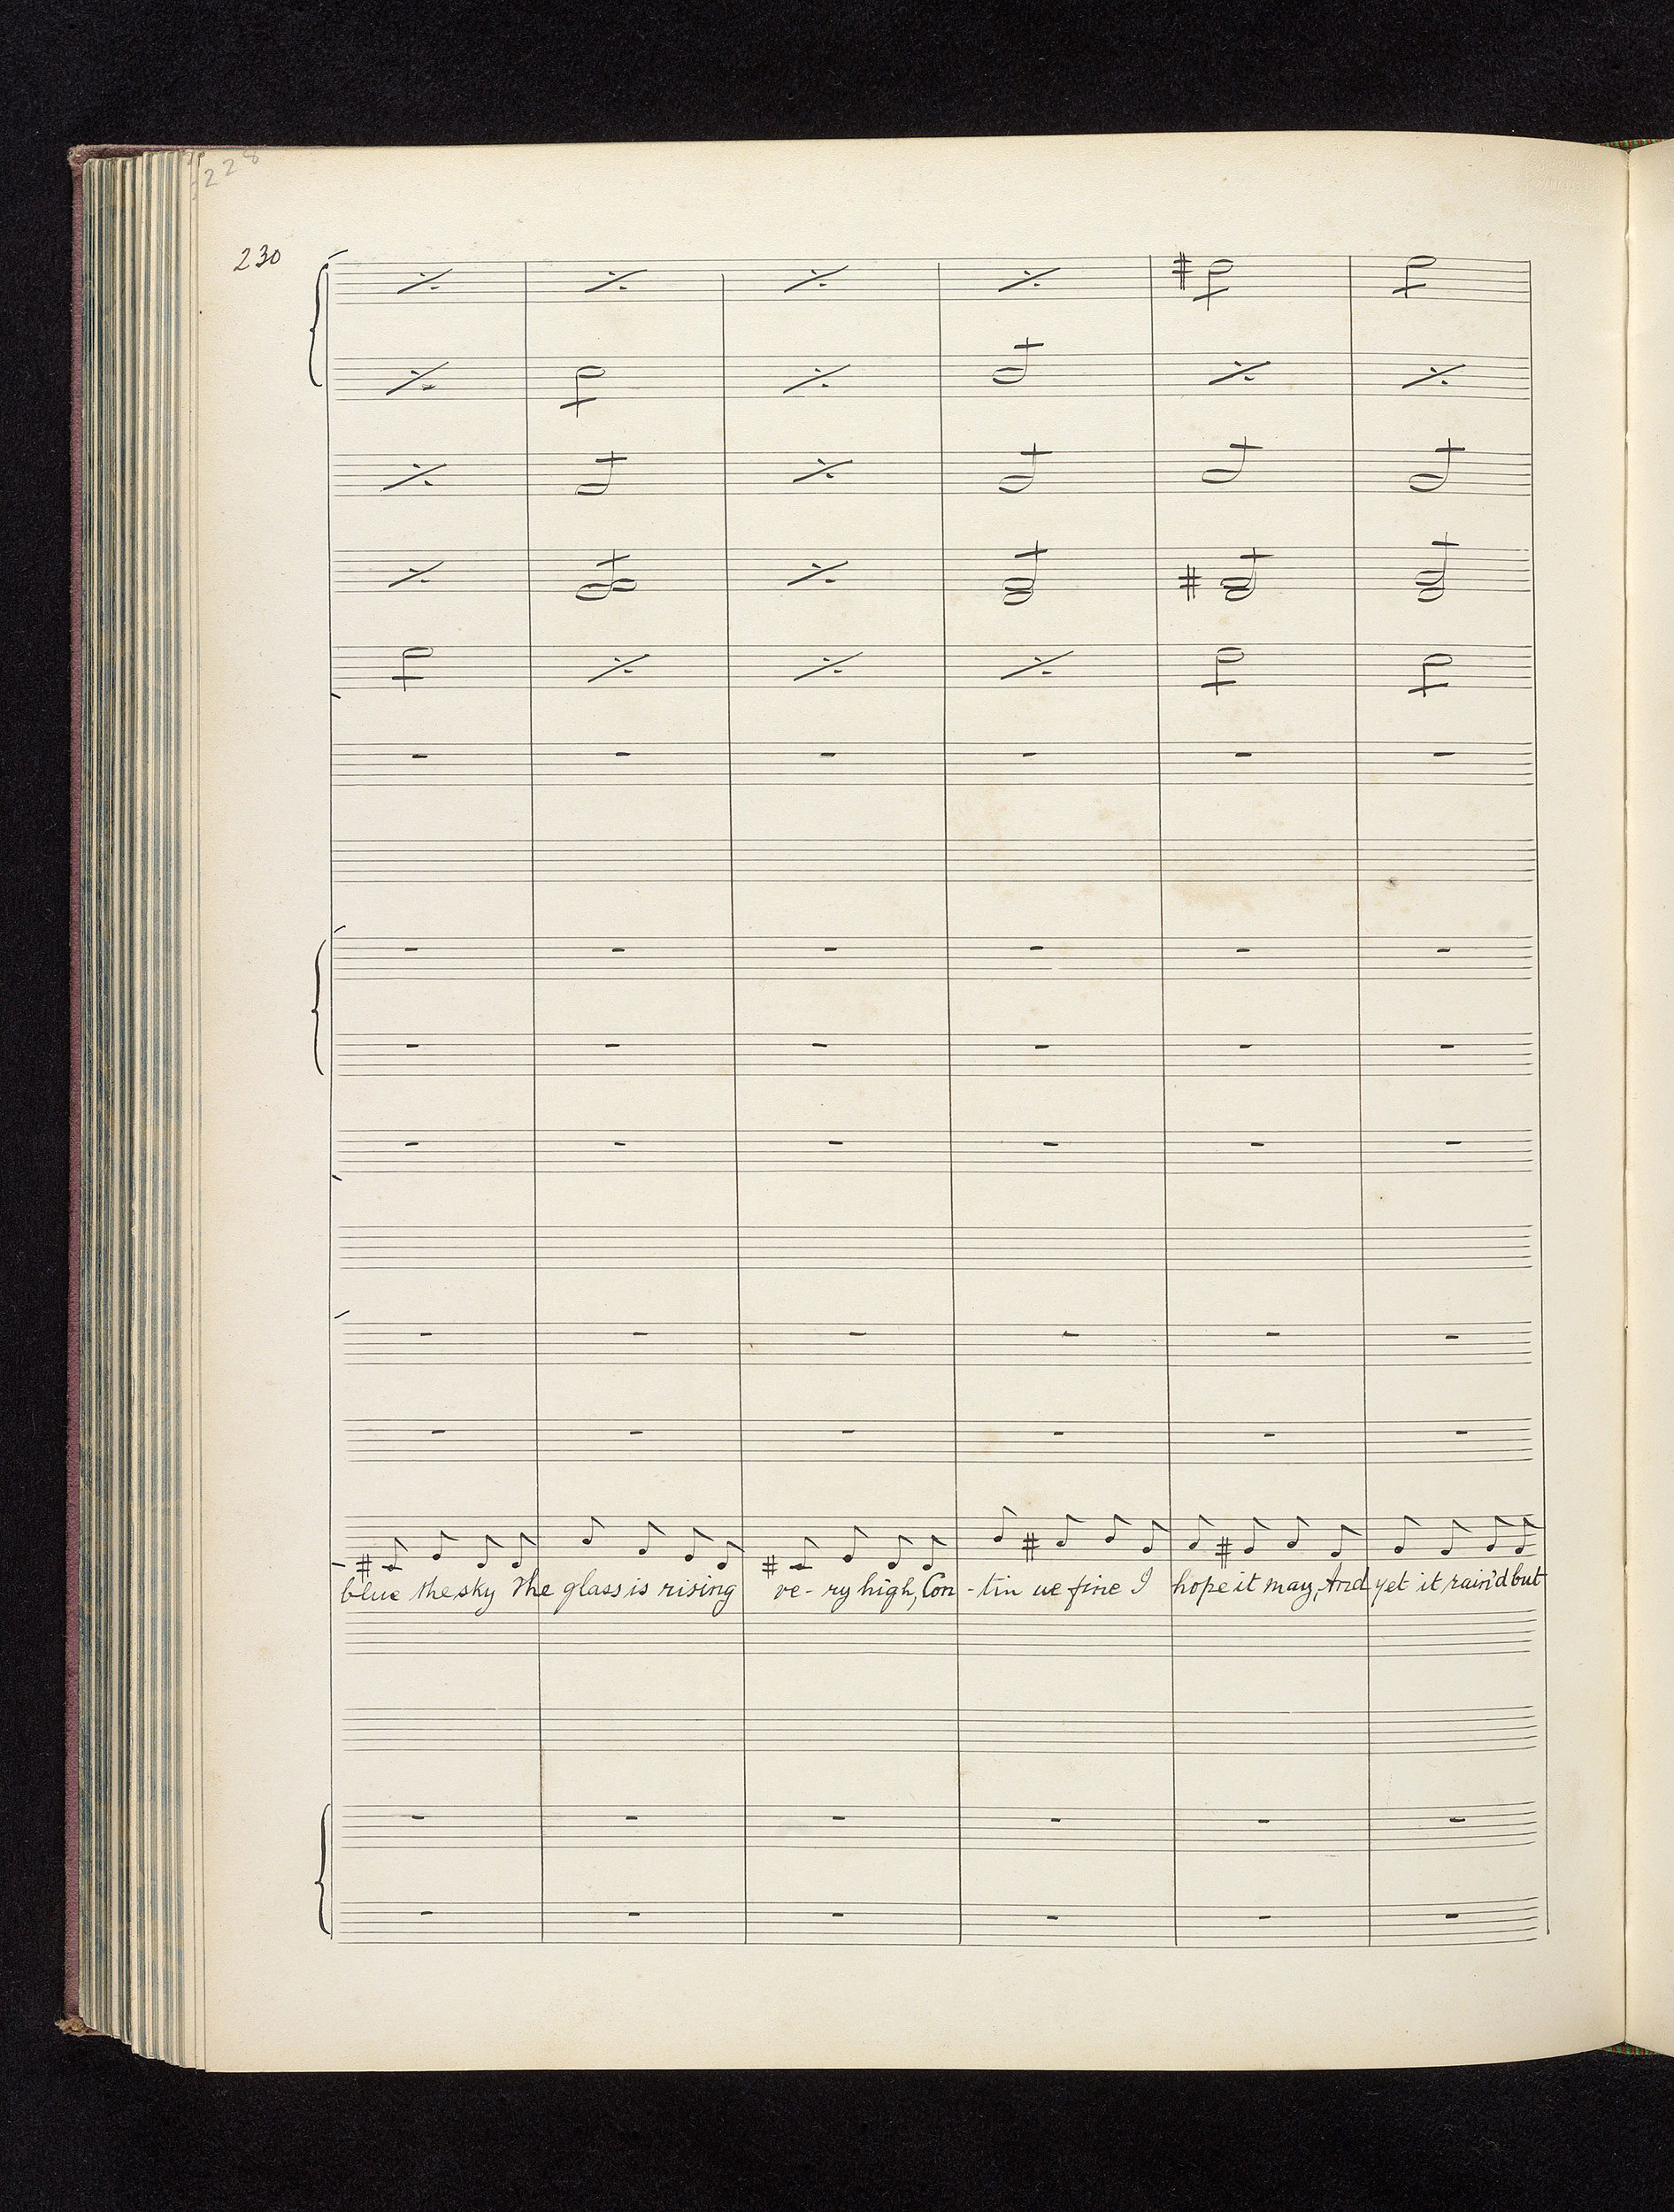 228
230
blue the sky The glass is rising ve-ry high, Con-tin ue fine I hope it may, And yet it rain'd but